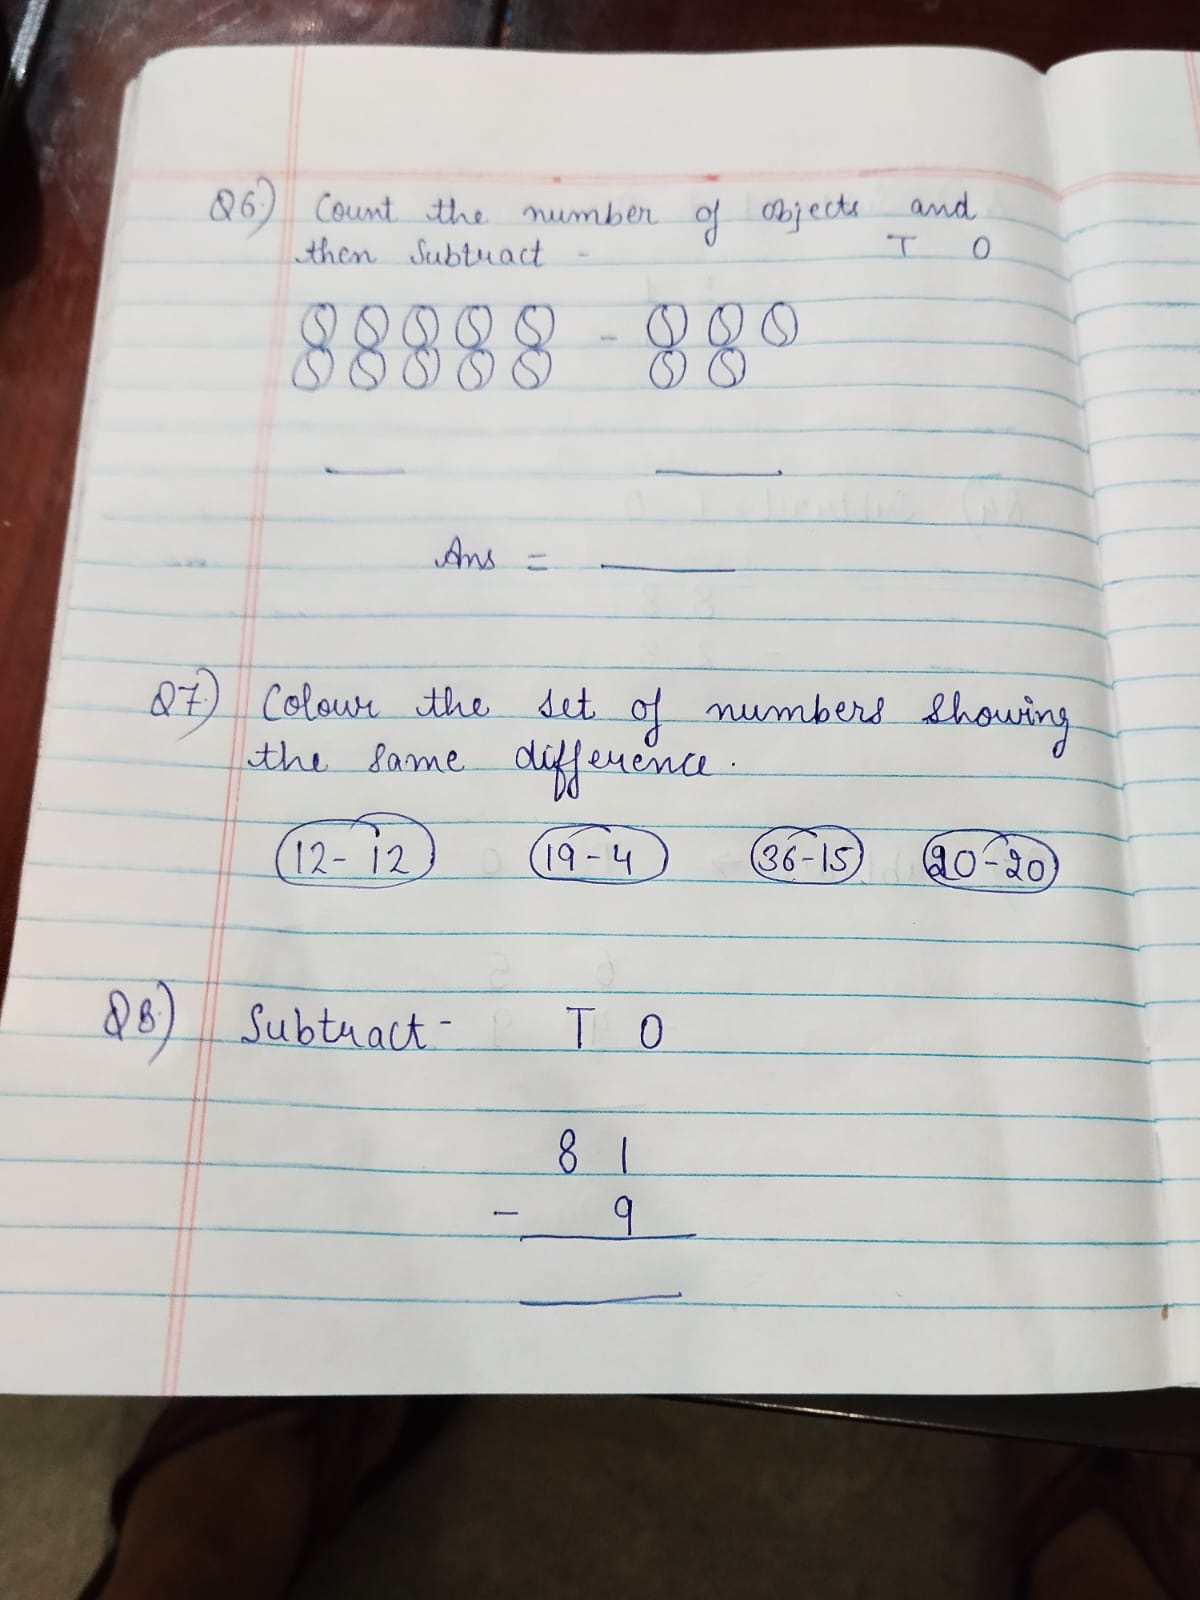 Q6.) Count the number of objects and
then Subtract - T O
-
Ans =
Q7.) Colour the set of numbers showing
the same difference.
12-12 19-4 36-15 20-20
Q8.) Subtract- T O
8 1
- 9